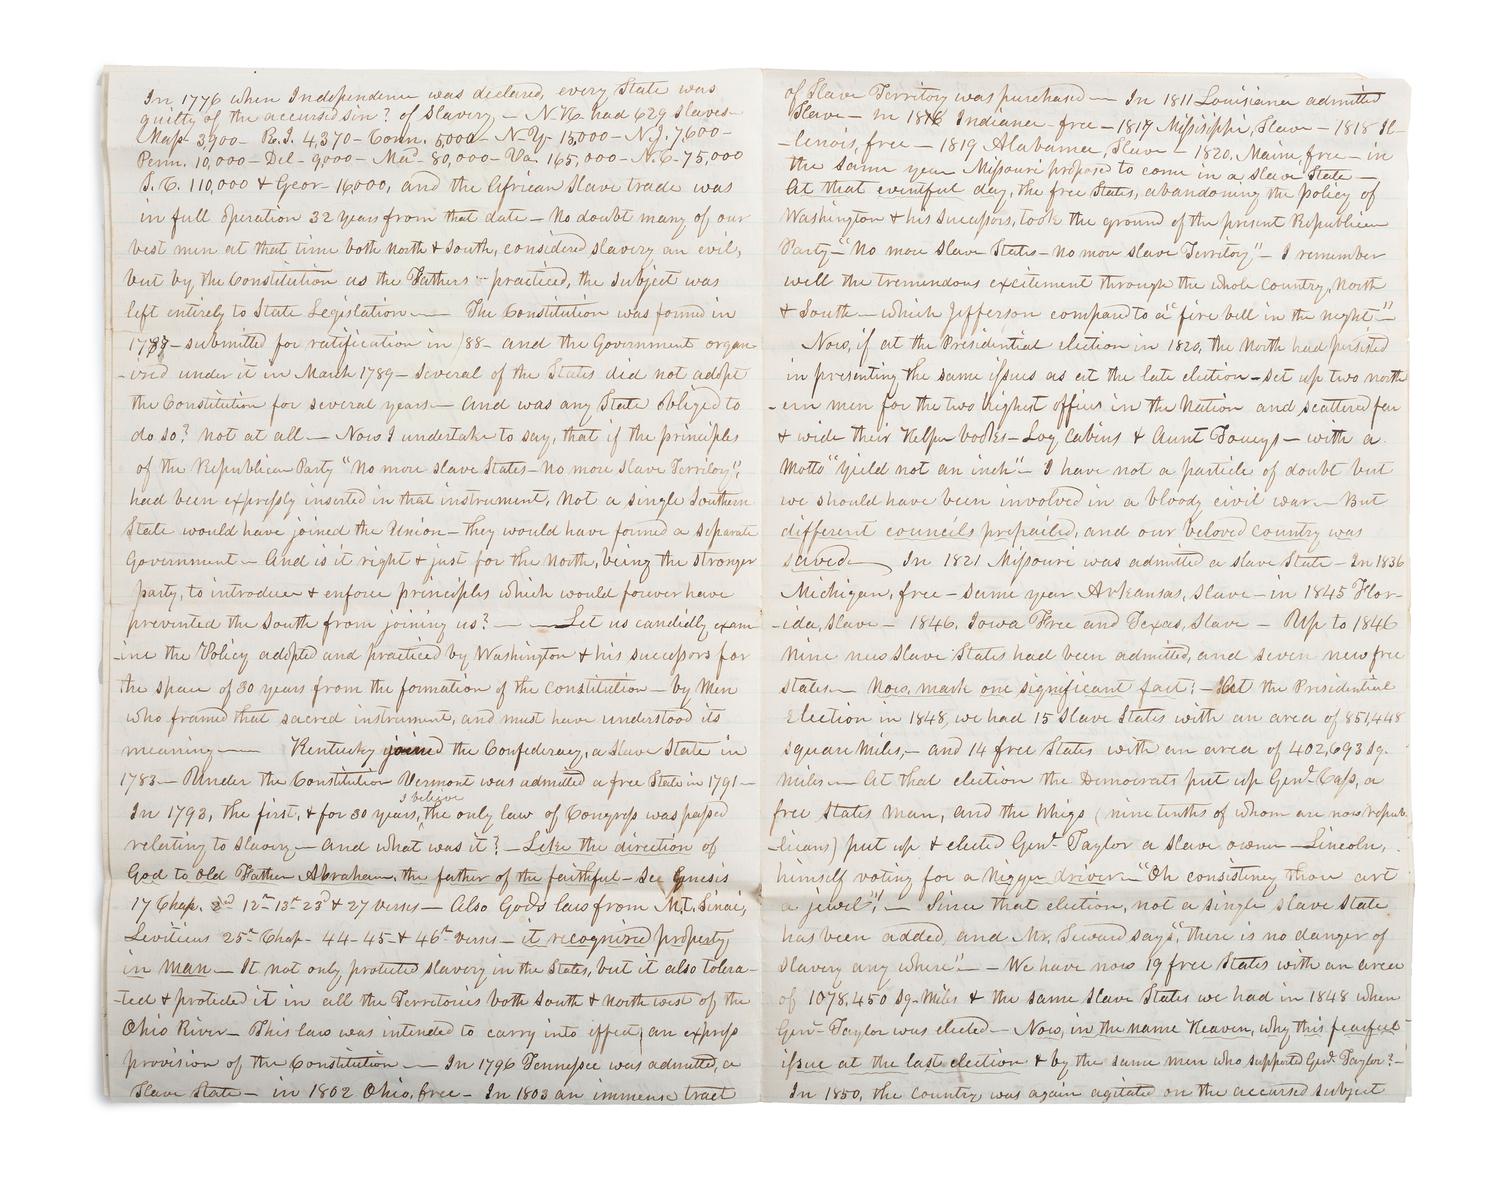 In 1776 when Independence was declared, every State was
guilty of the accursed sin? of Slavery – N.H. had 629 slaves –
Mass 3,900 – R.I. 4,370 – Conn. 5,000 – N.Y. 15,000 – N.J. 7,600 –
Penn. 10,000 – Del – 9000 – Md – 80,000 – Va. 165,000 – N.C – 75,000
S.C. 110,000 & Geor – 16000, and the African Slave trade was
in full operation 32 years from that date – No doubt many of our
best men at that time both North & South, considered slavery an evil,
but by the Constitution as the Fathers practiced, the subject was
left entirely to State Legislation — The Constitution was formed in
1787 – submitted for ratification in /88 – and the Government organ-
-ized under it in March 1789 – Several of the States did not adopt
the Constitution for several years — and was any State obliged to
do so? not at all — Now I undertake to say, that if the principles
of the Republican Party "No more Slave States – No more Slave Territory",
had been expressly inserted in that instrument, not a single Southern
State would have joined the Union – they would have formed a separate
Government – And is it right & just for the North, being the stronger
party, to introduce & enforce principles which would forever have
prevented the South from joining us? — Let us candidly exam-
-ine the Policy adopted and practiced by Washington & his successors for
the space of 30 years from the formation of the Constitution – by Men
who framed that sacred instrument, and must have understood its
meaning — Kentucky joined the Confederacy, a Slave State in
1783 – Under the Constitution Vermont was admitted a free State in 1791 –
I believe
In 1793, the first, & for 30 years, the only law of Congress was passed
relating to Slavery – And what was it? – Like the direction of
God to Old Father Abraham, the father of the faithful – See Genesis
17 Chap. 2d 12th 13th 23d & 27 verses – Also God's laws from Mt. Sinai,
Leviticus 25th Chap – 44 – 45 – & 46th verses – it recognized property
in man – It not only protected slavery in the States, but it also tolera-
-ted & protected it in all the Territories both South & North west of the
Ohio River – This law was intended to carry into effect, an express
provision of the Constitution — In 1796 Tennessee was admitted, a
Slave State – in 1802 Ohio, free – In 1803 an immense tract
of Slave Territory was purchased — In 1811 Louisiana admitted
Slave – in 1816 Indiana – free – 1817 Mississippi, Slave – 1818 Il-
-linois, free – 1819 Alabama, Slave – 1820, Maine, free – in
the same year Missouri proposed to come in a slave State –
At that eventful day, the free States, abandoning the policy of
Washington & his successors, took the ground of the present Republican
Party – "No more Slave States – no more Slave Territory" – I remember
well the tremendous excitement through the whole Country, North
& South – which Jefferson compared to a "fire bell in the night" –
Now, if at the Presidential election in 1820, the North had persisted
in presenting the same issues as at the late election – set up two north
-ern men for the two highest offices in the Nation and scattered far
& wide their Helper books – Log Cabins & Aunt – with a
Motto "Yield not an inch" – I have not a particle of doubt but
we should have been involved in a bloody civil war. – But
different councils prevailed, and our beloved Country was
saved — In 1821 Missouri was admitted a slave State – In 1836
Michigan, free – same year Arkansas, Slave – in 1845 Flor-
-ida, Slave – 1846, Iowa Free and Texas, Slave – Up to 1846
nine new Slave States had been admitted, and seven new free
states — Now, mark one significant fact; – At the Presidential
Election in 1848, we had 15 Slave States with an area of 851,448
square miles, – and 14 free States with an area of 402,693 sq.
miles — At that election the Democrats put up Genl. Cass, a
free States man, and the Whigs (nine tenths of whom are now repub-
-licans) put up & elected Genl. Taylor a slave owner – Lincoln,
himself voting for a Nigger driver – "Oh consistency thou art
a jewel", – Since that election, not a single slave State
has been added, and Mr. Seward says, "there is no danger of
Slavery any where" – We have now 19 free States with an area
of 1078,450 sq. miles & the same Slave States we had in 1848 when
Genl. Taylor was elected – Now, in the name Heaven, why this fearful
issue at the last election & by the same men who supported Genl. Taylor? –
In 1850, the Country was again agitated on the accursed subject